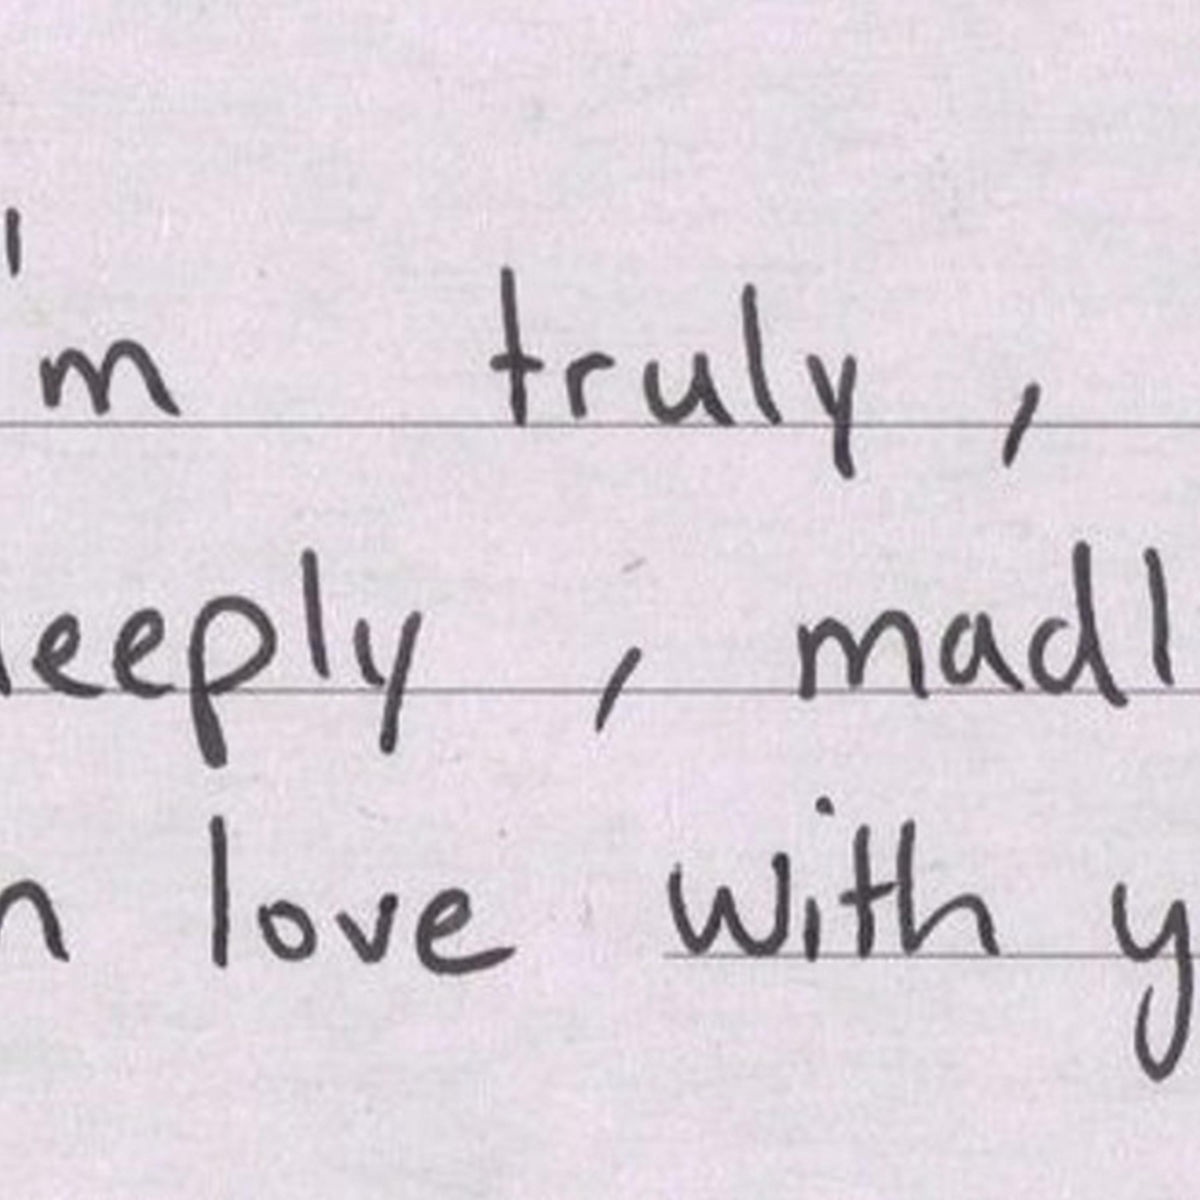 'm truly ,
eeply , madl
n love with y